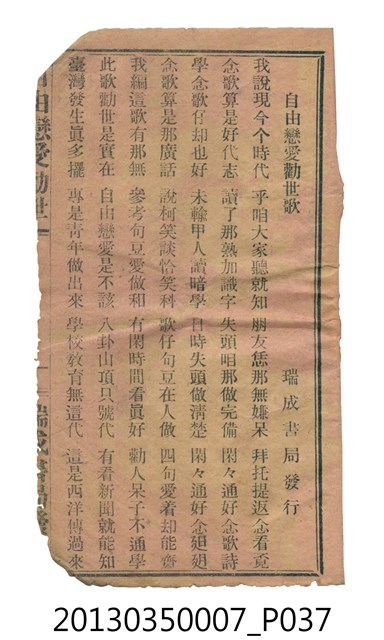 自由戀愛勸世歌
瑞成書局發行
我說現今个時代 乎咱大家聽就知 朋友恁那無嫌呆 拜托提返念看覓
念歌算是好代志 讀了那熟加識字 失頭咱那做完備 閑々通好念歌詩
學念歌仔却也好 未輸甲人讀暗學 日時失頭做淸楚 閑々通好念𨑨迌
念歌算是那廣話 說柯笑談恰笑科 歌仔句豆在人做 四句愛着却能齋
我編這歌有那無 參考句豆愛做和 有閑時間看眞好 勸人呆子不通學
此歌勸世是實在 自由戀愛是不該 八卦山頂只號代 有看新聞就能知
臺灣發生眞多擺 專是靑年做出來 學校敎育無這代 這是西洋傳過來
自由戀愛勸世
瑞成書局發
20130350007_P037